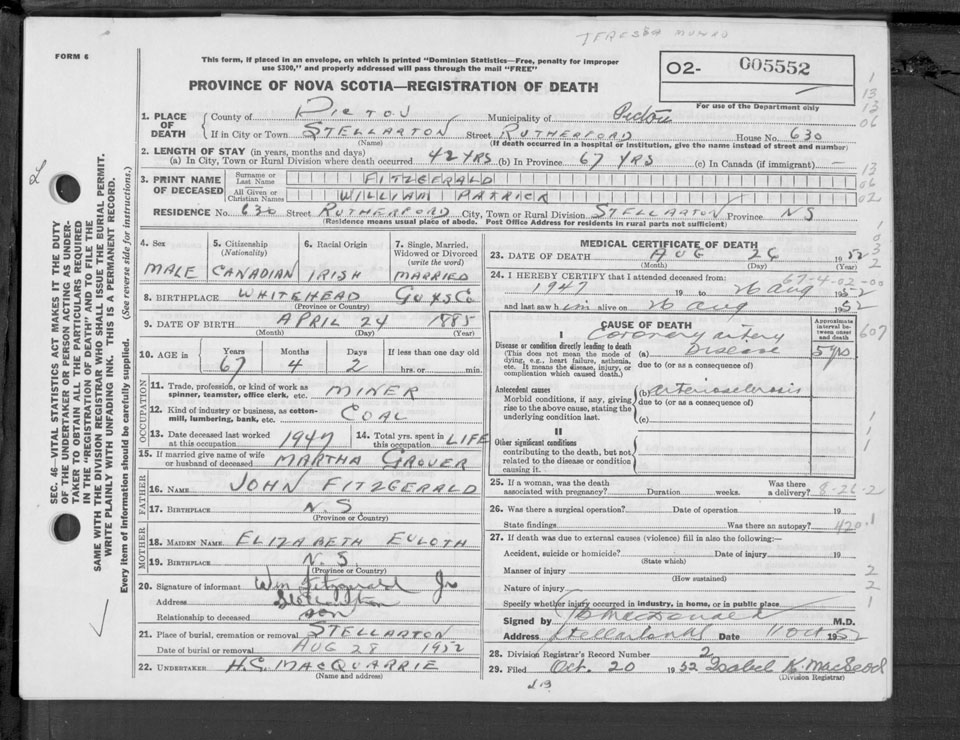 TERESSA MUNRO
FORM 6
This form, if placed in an envelope, on which is printed "Dominion Statistics—Free, penalty for improper
use $300," and properly addressed will pass through the mail "FREE"
02- 005552
For use of the Department only
PROVINCE OF NOVA SCOTIA—REGISTRATION OF DEATH
1. PLACE OF DEATH
County of PICTOU Municipality of Pictou
If in City or Town STELLARTON Street RUTHERFORD House No. 630
(Name) (If death occurred in a hospital or institution, give the name instead of street and number)
2. LENGTH OF STAY (in years, months and days)
(a) In City, Town or Rural Division where death occurred 42 YRS (b) In Province 67 YRS (c) In Canada (if immigrant) —
3. PRINT NAME OF DECEASED
Surname or Last Name FITZGERALD
All Given or Christian Names WILLIAM PATRICK
RESIDENCE No. 630 Street RUTHERFORD City, Town or Rural Division STELLARTON Province NS
(Residence means usual place of abode. Post Office Address for residents in rural parts not sufficient)
4. Sex
MALE
5. Citizenship (Nationality)
CANADIAN
6. Racial Origin
IRISH
7. Single, Married, Widowed or Divorced (write the word)
MARRIED
8. BIRTHPLACE WHITEHEAD GUYS CO
(Province or Country)
9. DATE OF BIRTH APRIL 24 1885
(Month) (Day) (Year)
10. AGE in Years Months Days If less than one day old
67 4 2 hrs. or min.
OCCUPATION
11. Trade, profession, or kind of work as spinner, teamster, office clerk, etc. MINER
12. Kind of industry or business, as cotton-mill, lumbering, bank, etc. COAL
13. Date deceased last worked at this occupation 1947
14. Total yrs. spent in this occupation LIFE
15. If married give name of wife or husband of deceased MARTHA GROVER
FATHER
16. NAME JOHN FITZGERALD
17. BIRTHPLACE N.S.
(Province or Country)
MOTHER
18. MAIDEN NAME ELIZABETH EULOTH
19. BIRTHPLACE N.S.
(Province or Country)
20. Signature of informant Wm Fitzgerald Jr
Address Stellarton
Relationship to deceased son
21. Place of burial, cremation or removal STELLARTON
Date of burial or removal AUG 28 1952
22. UNDERTAKER H.G. MACQUARRIE
(Name and address)
MEDICAL CERTIFICATE OF DEATH
23. DATE OF DEATH AUG 26 1952
(Month) (Day) (Year)
24. I HEREBY CERTIFY that I attended deceased from:
1947 19 to 26 aug 1952
and last saw him alive on 26 aug 1952
CAUSE OF DEATH
Approximate interval between onset and death
I
Disease or condition directly leading to death
(This does not mean the mode of dying, e.g., heart failure, asthenia, etc. It means the disease, injury, or complication which caused death.)
(a) Coronary artery Disease 5 yrs
due to (or as a consequence of)
Antecedent causes
Morbid conditions, if any, giving rise to the above cause, stating the underlying condition last.
(b) arteriosclerosis
due to (or as a consequence of)
(c)
II
Other significant conditions
contributing to the death, but not related to the disease or condition causing it.
25. If a woman, was the death associated with pregnancy? Duration weeks. Was there a delivery? 8-26-2
26. Was there a surgical operation? Date of operation 19
State findings Was there an autopsy? 420.1
27. If death was due to external causes (violence) fill in also the following:—
Accident, suicide or homicide? Date of injury 19
(State which)
Manner of injury
(How sustained)
Nature of injury
Specify whether injury occurred in industry, in home, or in public place
Signed by JB MacDonald M.D.
Address Stellarton NS Date 11 Oct 1952
28. Division Registrar's Record Number 2
29. Filed Oct. 20 1952 Isabel K. MacLeod
(Division Registrar)
SEC. 46—VITAL STATISTICS ACT MAKES IT THE DUTY
OF THE UNDERTAKER OR PERSON ACTING AS UNDER-
TAKER TO OBTAIN ALL THE PARTICULARS REQUIRED
IN THE "REGISTRATION OF DEATH" AND TO FILE THE
SAME WITH THE DIVISION REGISTRAR WHO SHALL ISSUE THE BURIAL PERMIT.
WRITE PLAINLY WITH UNFADING INK. THIS IS A PERMANENT RECORD.
Every item of information should be carefully supplied. (See reverse side for instructions.)
1
13
13
06
13
06
02
607
2
2
1